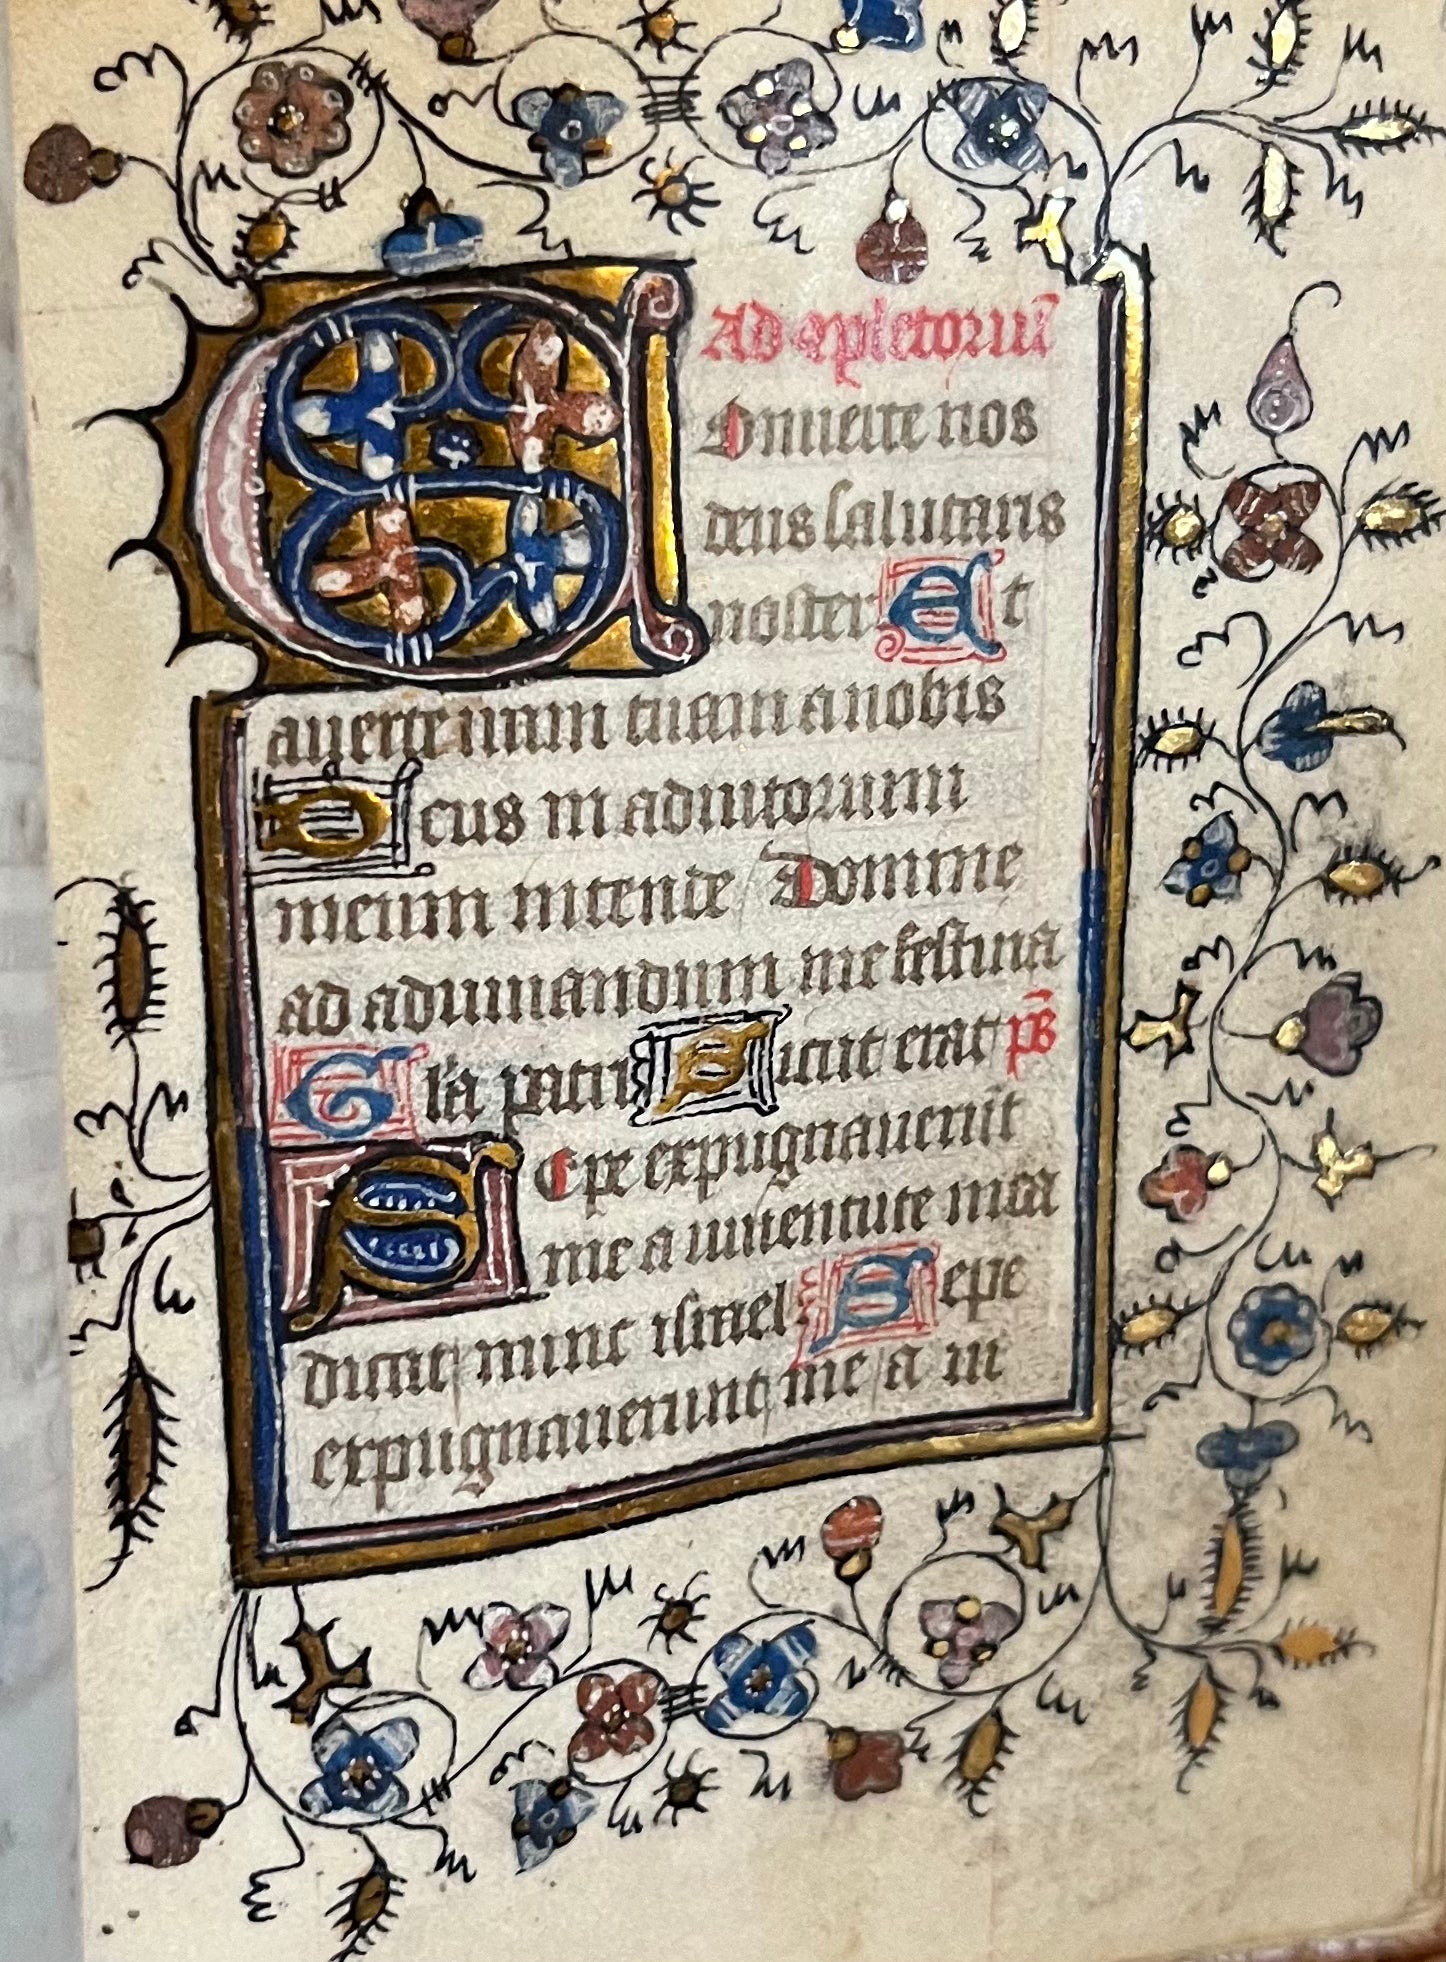 Ad ꝯpletoriū
Conuerte nos
deus salutaris
noster Et
auerte iram tuam a nobis
Deus in adiutorium
meum intende Domine
ad adiuuandum me festina
Gl'a patri Sicut erat ps̄
Sepe expugnauerūt
me a iuuentute mea
dicat nunc israel Sepe
expugnauerunt me a iu